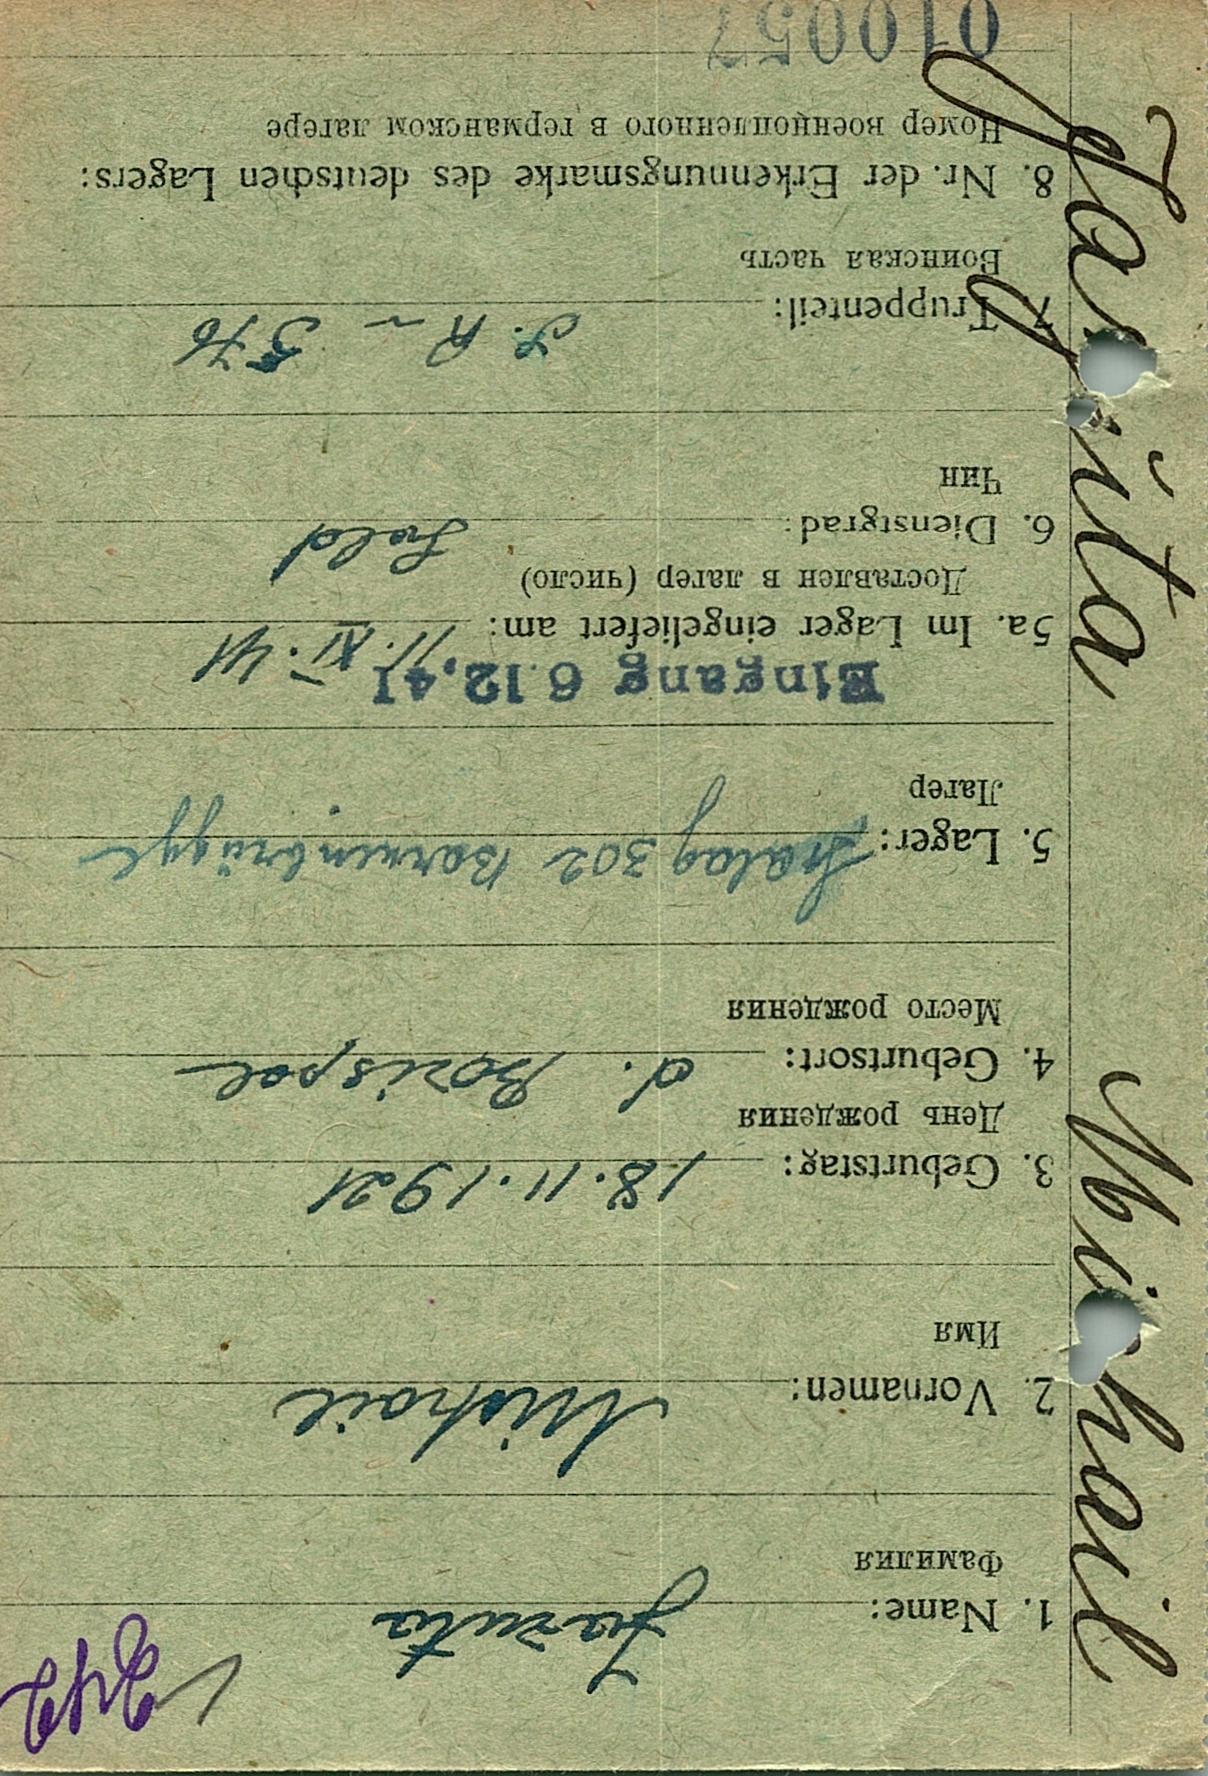 242
1. Name:
Фамилия
2. Vornamen: Mihail
Имя
3. Geburtstag: 18.11.1921
День рождения
4. Geburtsort: d. Borispol
Место рождения
5. Lager: Stalag 302 Barkenbrügge
Лагер
Eingang 6.12.41
5a. Im Lager eingeliefert am: 11.XI.41
Доставлен в лагер (число)
6. Dienstgrad: Sold
Чин
7. Truppenteil: I. R. 576
Воинская часть
8. Nr. der Erkennungsmarke des deutschen Lagers:
Номер военнопленного в германском лагере
010057
Mi hail